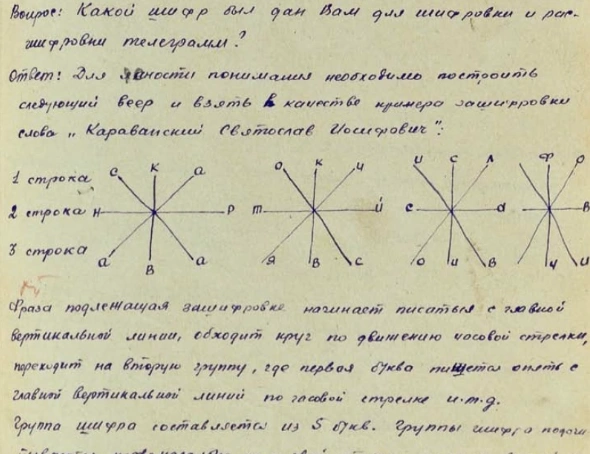 Вопрос: Какой шифр был дан Вам для шифровки и рас-
шифровки телеграмм?
Ответ: Для ясности понимания необходимо построить
следующий веер и взять в качестве примера зашифровки
слова „Караванский Святослав Иосифович":
С К А О К И И С Л Ф О
1 строка
2 строка Н Р Т Й С А В
3 строка
А В А Я В С О И В Ч И
Фраза подлежащая зашифровке начинает писаться с главной
вертикальной линии, обходит круг по движению часовой стрелки,
переходит на вторую группу, где первая буква пишется опять с
главной вертикальной линии по часовой стрелке и.т.д.
Группа шифра составляется из 5 букв. Группы шифра